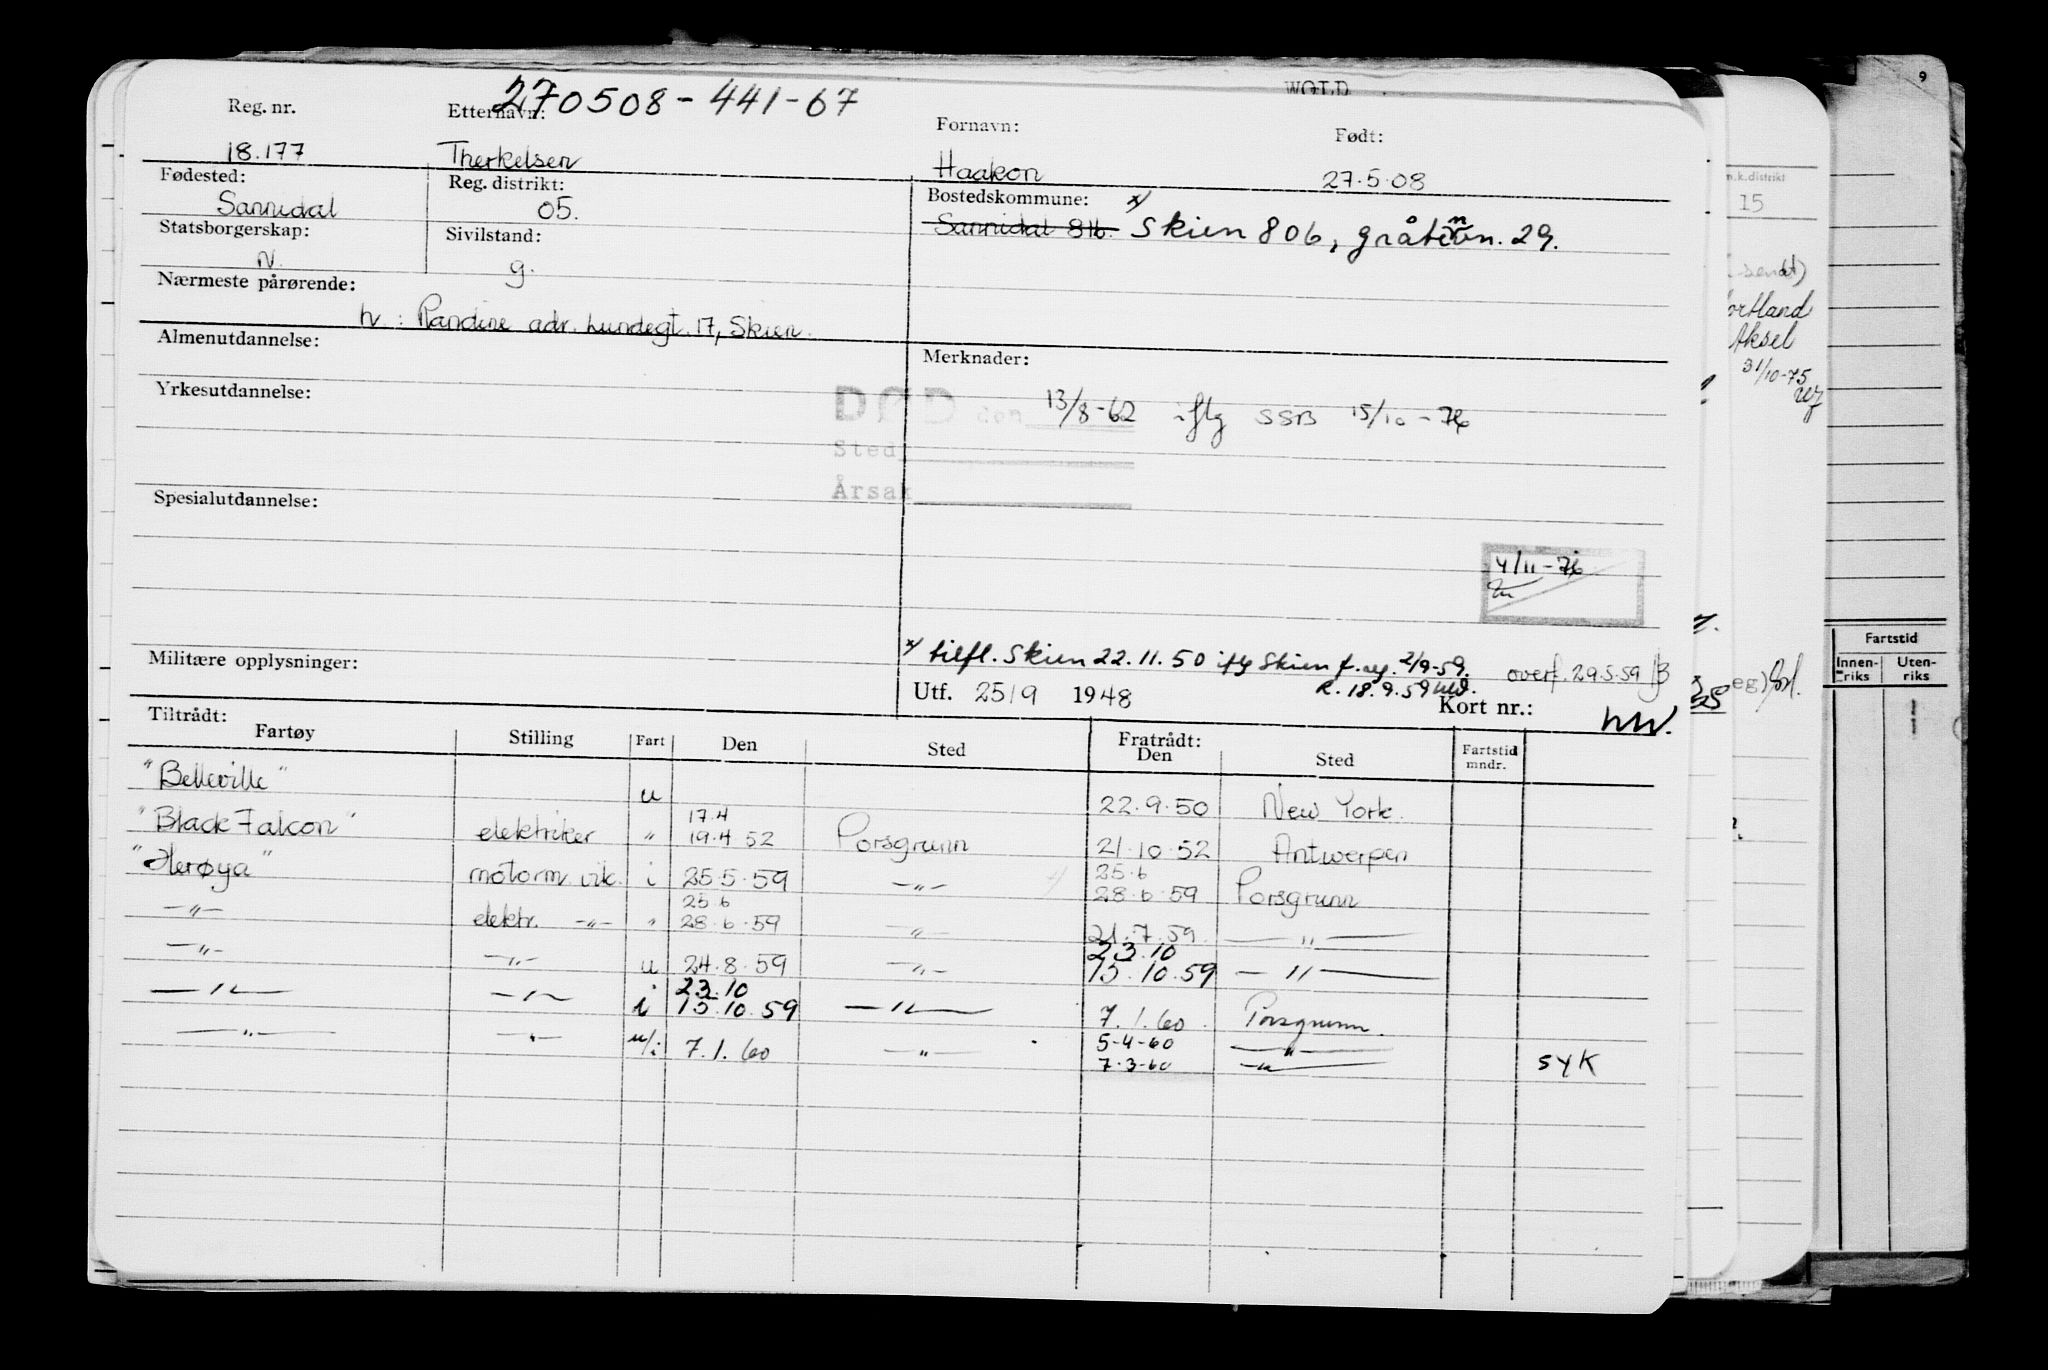 270508-441-67
WOLD
Reg. nr. Etternavn: Fornavn: Født:
18.177 Therkelsen Haakon 27.5.08
Fødested: Reg. distrikt: Bostedskommune:
Sannidal 05. Sannidal 816. x) Skien 806, gråtenvn. 29.
Statsborgerskap: Sivilstand:
N. g.
Nærmeste pårørende:
h.: Randine adr. Lundegt. 17, Skien.
Almenutdannelse: Merknader:
Yrkesutdannelse: DØD den 13/8-62 iflg SSB 15/10-76
Sted
Årsak
Spesialutdannelse:
4/11-76
x) tilfl. Skien 22.11.50 iflg Skien f.reg. 2/9-59.
Militære opplysninger: overf. 29.5.59
R. 18.9.59
Utf. 25/9 1948 Kort nr.:
Tiltrådt: Fratrådt:
Fartøy Stilling Fart Den Sted Den Sted Fartstid mndr.
"Belleville" u 22.9.50 New York.
17.4
"Black Falcon" elektriker " 19.4 52 Porsgrunn 21.10.52 Antwerpen
25.6
"Herøya" motorm. vik. i 25.5.59 -"- 28.6.59 Porsgrunn
25.6
-"- elektr. -"- " 28.6.59 -"- 21.7.59. -"-
23.10
-"- -"- u 24.8.59 -"- 15.10.59 -"-
23.10
-"- -"- i 15.10.59 -"- 7.1.60. Porsgrunn.
5-4-60 -"-
-"- -"- u/i 7.1.60 -"- 7.3-60 -"- SYK
9
m.k.distrikt
15
sendt)
Aksel
31/10-75
Fartstid
Innenriks Utenriks